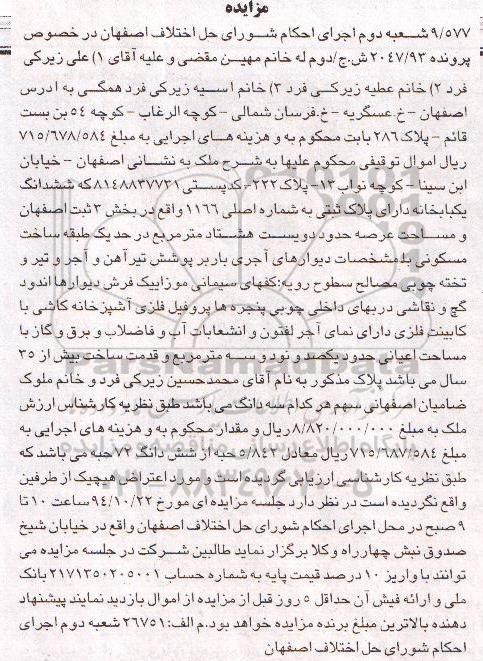 مزایده
۹/۵۷۷ شعبه دوم اجرای احکام شورای حل اختلاف اصفهان در خصوص
پرونده ۲۰۴۷/۹۳ ش.ج/دوم له خانم مهین مقضی و علیه آقای ۱) علی زیرکی
فرد ۲) خانم عطیه زیرکی فرد ۳) خانم آسیه زیرکی فرد همگی به آدرس
اصفهان - خ.عسگریه - خ.فرسان شمالی - کوچه الرغاب - کوچه ۵۴ بن بست
قائم - پلاک ۲۸۶ بابت محکوم به و هزینه های اجرایی به مبلغ ۷۱۵/۶۷۸/۵۸۴
ریال اموال توقیفی محکوم علیها به شرح ملک به نشانی اصفهان - خیابان
ابن سینا - کوچه نواب ۱۳- پلاک ۲۲۲- کدپستی ۸۱۴۸۸۳۷۷۳۱ که ششدانگ
یکبابخانه دارای پلاک ثبتی به شماره اصلی ۱۱۶۶ واقع در بخش ۳ ثبت اصفهان
و مساحت عرصه حدود دویست هشتاد متر مربع در حد یک طبقه ساخت
مسکونی با مشخصات دیوارهای آجری باربر پوشش تیرآهن و آجر و تیر و
تخته چوبی مصالح سطوح رویه: کفهای سیمانی موزاییک فرش دیوارها اندود
گچ و نقاشی دربهای داخلی چوبی پنجره ها پروفیل فلزی آشپزخانه کاشی با
کابینت فلزی دارای نمای آجر لفتون و انشعابات آب و فاضلاب و برق و گاز با
مساحت اعیانی حدود یکصد و نود و سه متر مربع و قدمت ساخت بیش از ۳۵
سال می باشد پلاک مذکور به نام آقای محمدحسین زیرکی فرد و خانم ملوک
ضامیان اصفهانی سهم هر کدام سه دانگ می باشد طبق نظریه کارشناس ارزش
ملک به مبلغ ۸/۸۲۰/۰۰۰/۰۰۰ ریال و مقدار محکوم به و هزینه های اجرایی به
مبلغ ۷۱۵/۶۸۷/۵۸۴ ریال معادل ۵/۸۴۲ حبه از شش دانگ ۷۲ حبه می باشد که
طبق نظریه کارشناسی ارزیابی گردیده است و مورد اعتراض هیچیک از طرفین
واقع نگردیده است در نظر دارد جلسه مزایده ای مورخ ۹۴/۱۰/۲۲ ساعت ۱۰ تا
۹ صبح در محل اجرای احکام شورای حل اختلاف اصفهان واقع در خیابان شیخ
صدوق نبش چهارراه وکلا برگزار نماید طالبین شرکت در جلسه مزایده می
توانند با واریز ۱۰ درصد قیمت پایه به شماره حساب ۲۱۷۱۳۵۰۲۰۵۰۰۱ بانک
ملی و ارائه فیش آن حداقل ۵ روز قبل از مزایده از اموال بازدید نمایند پیشنهاد
دهنده بالاترین مبلغ برنده مزایده خواهد بود.م الف:۲۶۷۵۱ شعبه دوم اجرای
احکام شورای حل اختلاف اصفهان
ParsNamadData
پایگاه اطلاع رسانی مناقصه و مزایده
۰۲۱-۸۸۳۴۹۶۷۰-۵